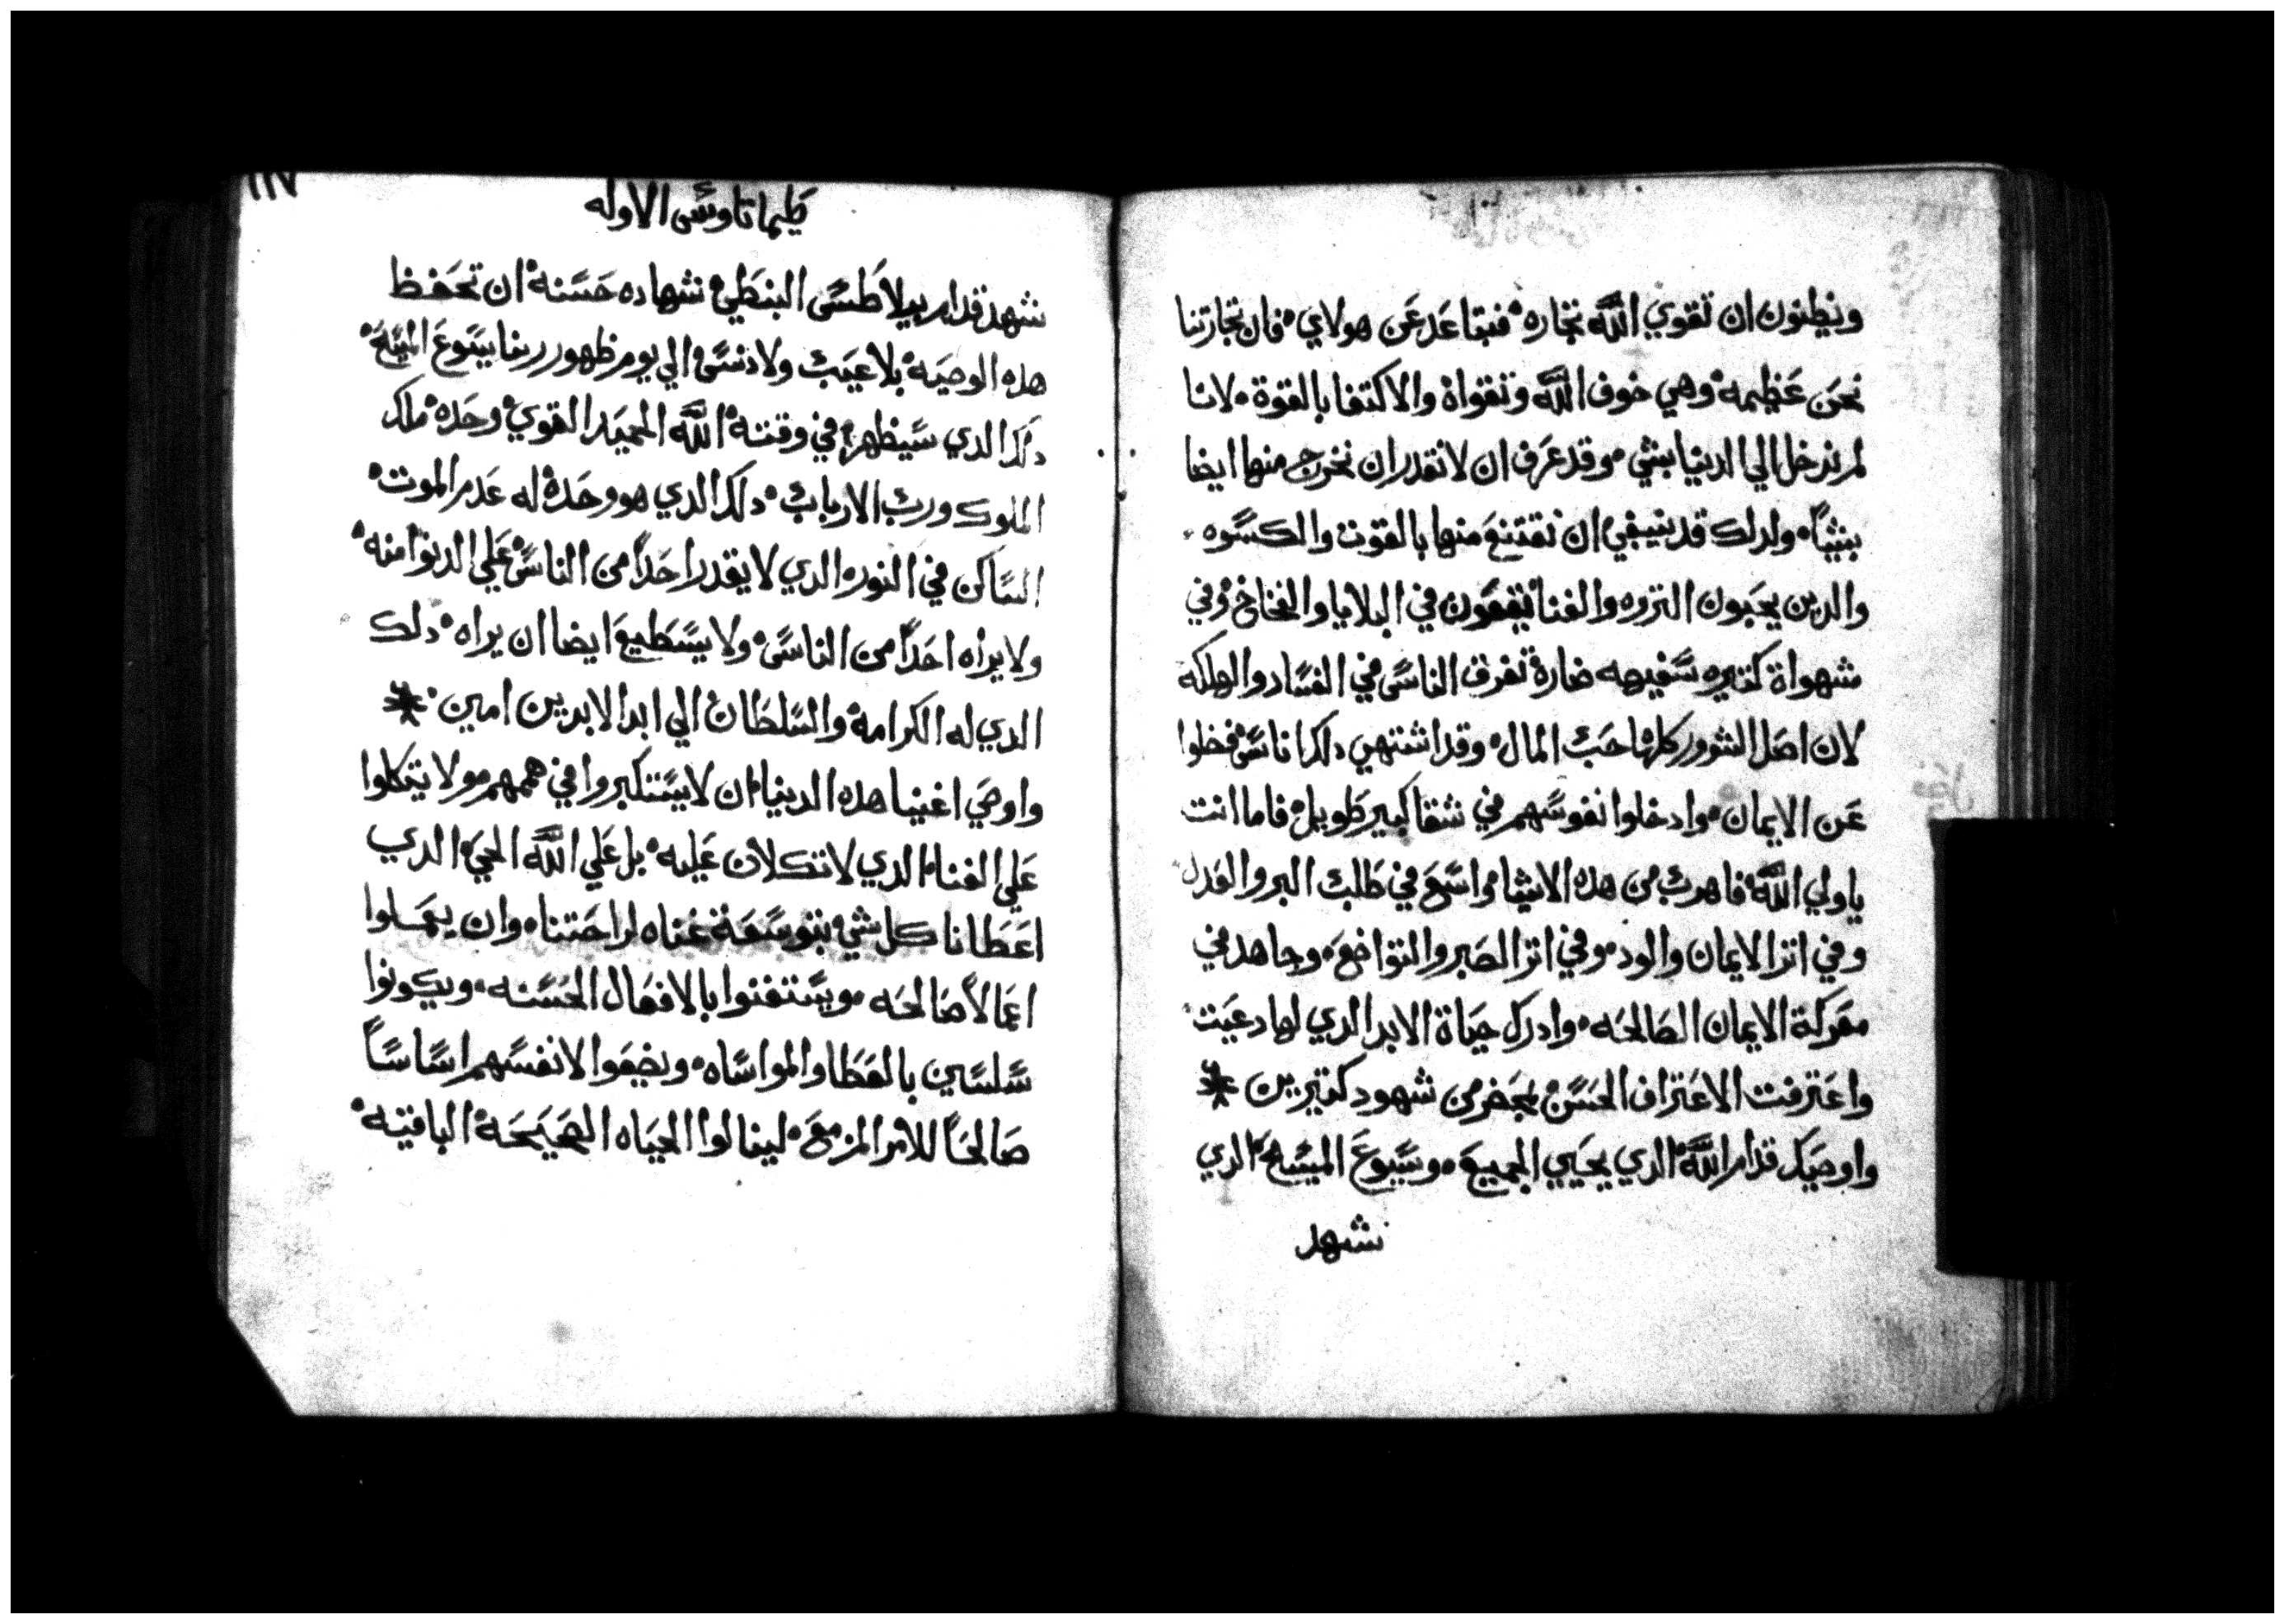 ويظنون ان تقوي اللّه تجاره فتباعد عن هولاي فان تجارتنا
نحن عظيمه وهي خوف اللّه وتقواة والاكتفا بالقوة لانا
لم ندخل الي الدنيا بشي وقد عرف ان لا نقدر ان نخرج منها ايضا
بشيًا ولدلك قد ينبغي ان نقتنع منها بالقوت والكسوه
والدين يحبون التروه والغنا يقعون في البلايا والفخاخ وفي
شهواة كتيره سفيهه ضارة تغرق الناس في الفساد والهلكه
لان اصل الشرور كلها حب المال وقد اشتهي دلك اناس فخلوا
عن الايمان وادخلوا نفوسهم في شقا كبير طويل فاما انت
ياولي اللّه فاهرب من هده الاشيا واسع في طلب البر والعدل
وفي اتر الايمان والود وفي اتر الصبر والتواضع وجاهد في
معركة الايمان الصالحه وادرك حياة الابد الدي لها دعيت
واعترفت الاعتراف الحسن بمحضر من شهود كتيرين
واوصيك قدام اللّه الدي يحيي الجميع ويسوع المسيح الدي
شهد
١١٧
طيماتاوس الاوله
شهد قدام بيلاطس البنطي شهاده حسنه ان تحفظ
هده الوصيه بلا عيب ولا دنس الي يوم ظهور ربنا يسوع المسيح
دلك الدي سيظهره في وقته اللّه الحميد القوي وحده ملك
الملوك ورب الارباب دلك الدي هو وحدة له عدم الموت
الساكن في النور الدي لا يقدر احدًا من الناس علي الدنوا منه
ولا يراه احدًا من الناس ولا يستطيع ايضا ان يراه دلك
الدي له الكرامه والسلطان الي ابد الابدين امين
واوصي اغنيا هده الدنيا ان لا يستكبروا في هممهم ولا يتكلوا
علي الغنا الدي لا تكلان عليه بل علي اللّه الحي الدي
اعطانا كل شي بتوسعة غناه لراحتنا وان يعملوا
اعمالاً صالحه ويستغنوا بالافعال الحسنه ويكونوا
سلسين بالعطا والمواساه ويضعوا لانفسهم اساسًا
صالحًا للامر المزمع لينالوا الحياه الصحيحة الباقيه